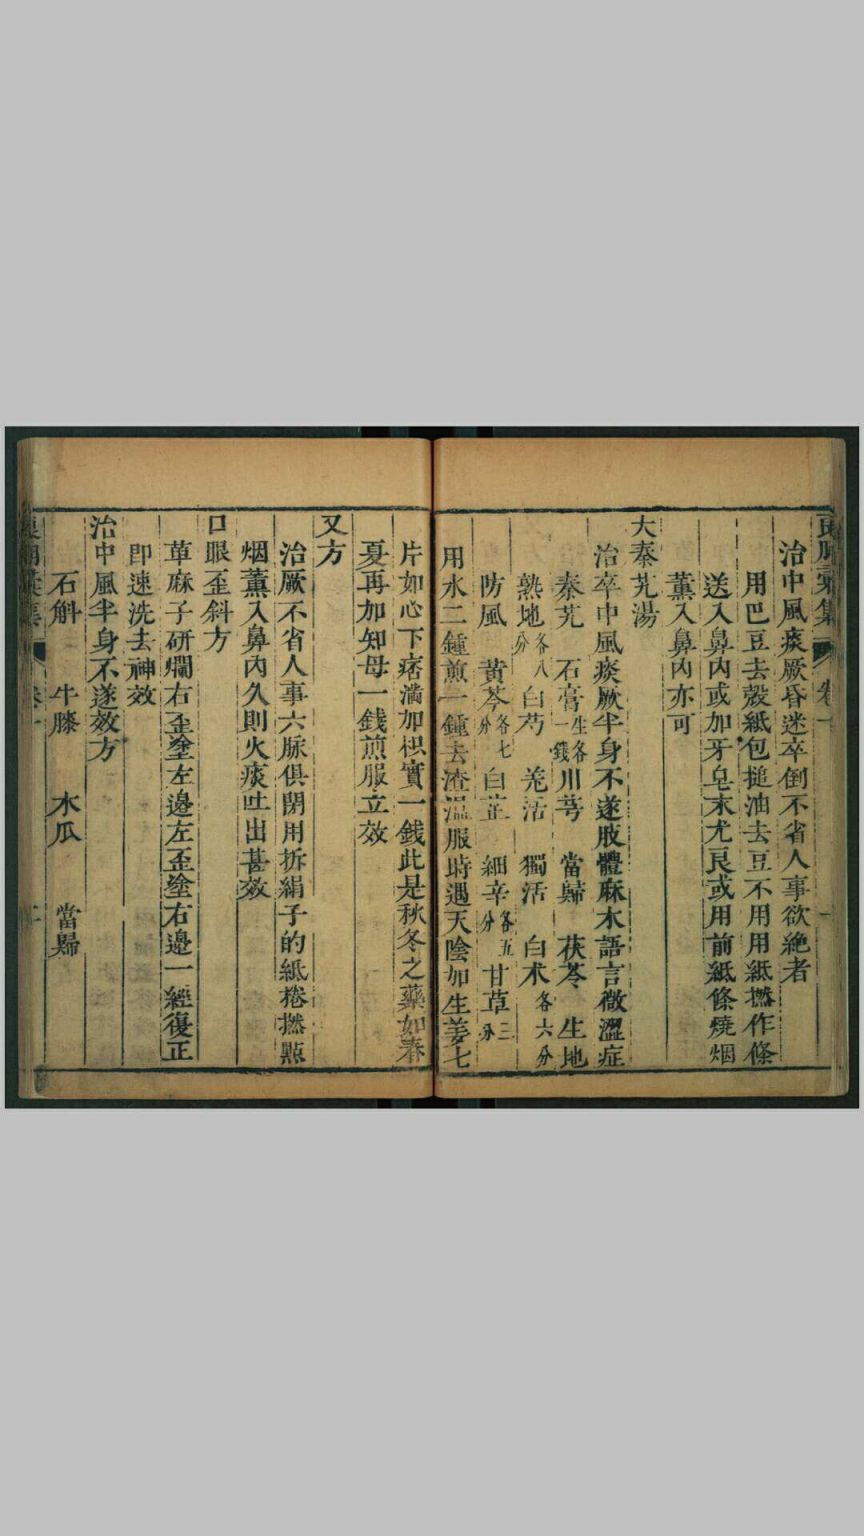 治中風痰厥昏迷卒倒不省人事欲絶者
用巴豆去殼紙包搥油去豆不用用紙撚作條
送入鼻內或加牙皂末尤良或用前紙條燒烟
薰入鼻內亦可
大秦艽湯
治卒中風痰厥半身不遂肢體麻木語言微澀症
秦艽 石膏 生各一錢 川芎 當歸 茯苓 生地
熟地 各八分 白芍 羌活 獨活 白术 各六分
防風 黃芩 各七分 白芷 細辛 各五分 甘草 三分
用水二鍾煎一鍾去渣溫服時遇天陰加生姜七
片如心下痞滿加枳實一錢此是秋冬之藥如春
夏再加知母一錢煎服立效
又方
治厥不省人事六脉俱閉用拆絹子的紙捲撚㸃
烟薰入鼻內久則火痰吐出甚效
口眼歪斜方
萆麻子研爛右歪塗左邊左歪塗右邊一經復正
即速洗去神效
治中風半身不遂效方
石斛 牛膝 木瓜 當歸